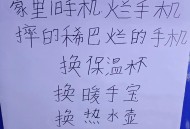 家里旧手机烂手机
摔的稀巴烂的手机
换保温杯
换暖手宝
换热水壶